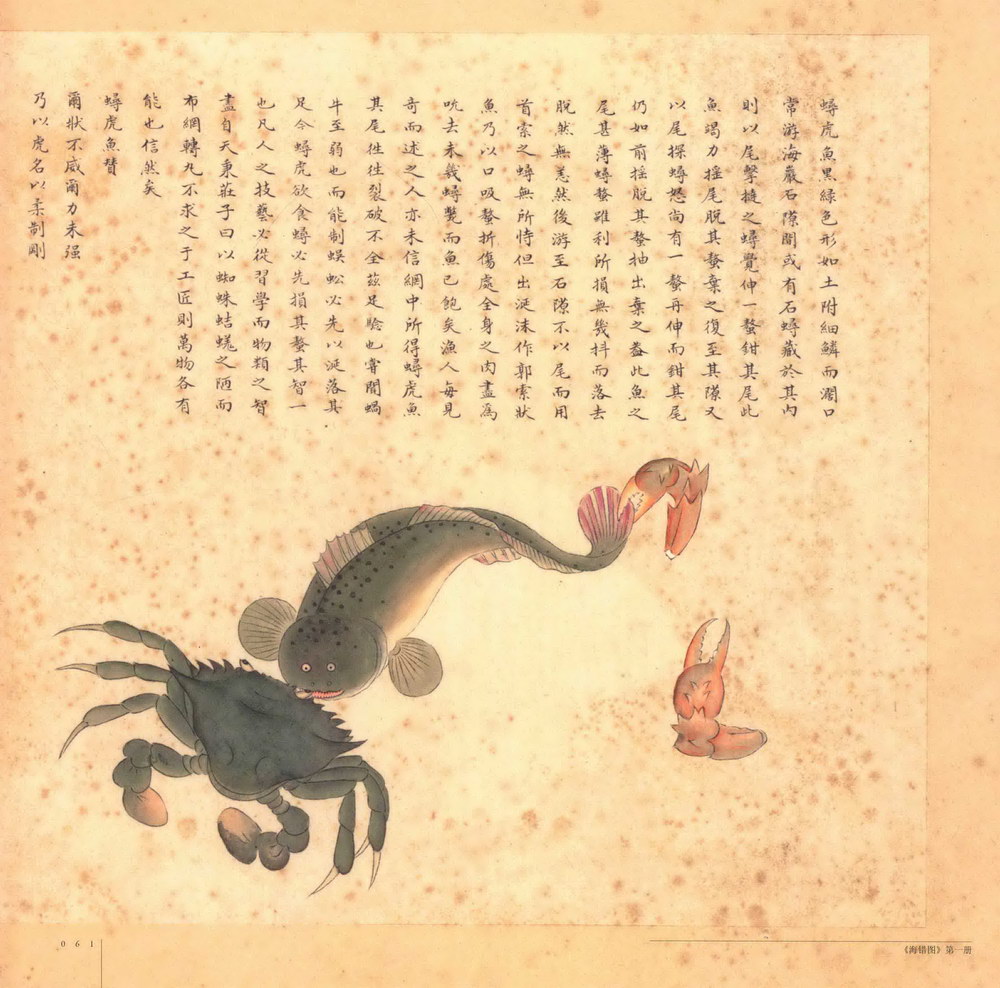 蟳虎魚黑綠色形如土附細鱗而濶口
常游海巖石隙間或有石蟳藏於其内
則以尾擊撻之蟳覺伸一螯鉗其尾此
魚竭力摇尾脱其螯棄之復至其隙又
以尾探蟳怒尚有一螯再伸而鉗其尾
仍如前摇脱其螯抽出棄之葢此魚之
尾甚薄蟳螯雖利所損無幾抖而落去
脱然無恙然後游至石隙不以尾而用
首索之蟳無所恃但出涎沫作郭索狀
魚乃以口吸螯折傷處全身之肉盡爲
吮去未幾蟳斃而魚已飽矣漁人每見
竒而述之人亦未信網中所得蟳虎魚
其尾徃徃裂破不全兹足驗也嘗聞蝎
牛至弱也而能制蜈蚣必先以涎落其
足今蟳虎欲食蟳必先損其螯其智一
也凡人之技藝必從習學而物類之智
盡自天稟莊子曰以蜘蛛蛣蜣之陋而
布網轉丸不求之于工匠則萬物各有
能也信然矣
蟳虎魚賛
爾狀不威爾力未强
乃以虎名以柔制剛
061
《海错图》第一册